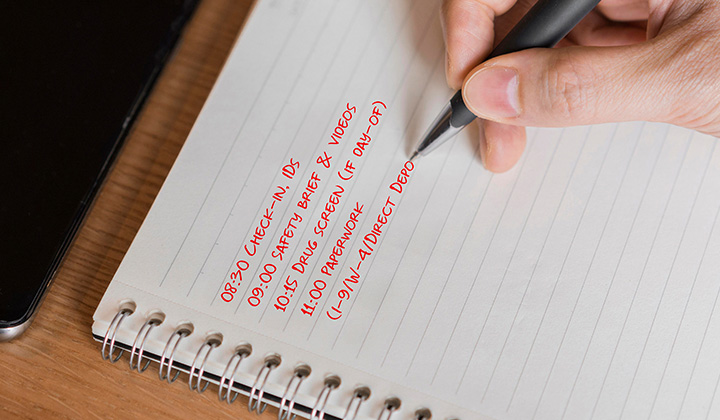 08:30 Check-in, IDs
09:00 Safety brief & videos
10:15 Drug screen (if day-of)
11:00 Paperwork
(I-9/W-4/Direct Depo